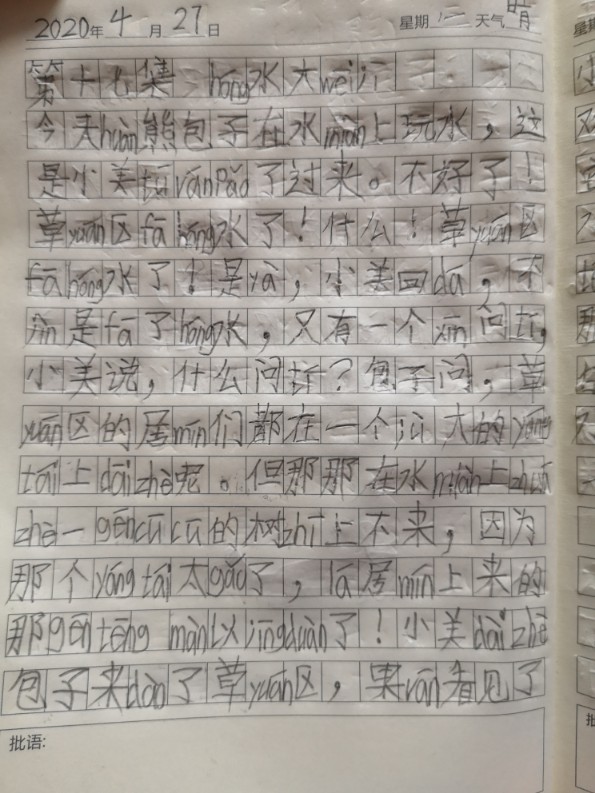 2020年4月27日 星期二 天气晴
第十七集 hóng水大wēi
今天huàn熊包子在水miàn上玩水，这
是小美tū ránpǎo了过来。不好了！
草yuán区fā hóng水了！什么！草yuán区
fā hóng水了！是yà，小美回dá，不
jǐn是fā了hóng水，只有一个xīn问tí，
小美说，什么问tí？包子问，草
yuán区的居mín们都在一个 大的yáng
tái上dāizhe呢。但那那在水miàn上zhuā
zhe一gēncū cū的树zhī上不来，因为
那个yáng tái太gāo了，lā居mín上来的
那gēn téng màn以 jīngduàn了！小美dàizhe
包子来dào了草yuán区，果rán看见了
批语: